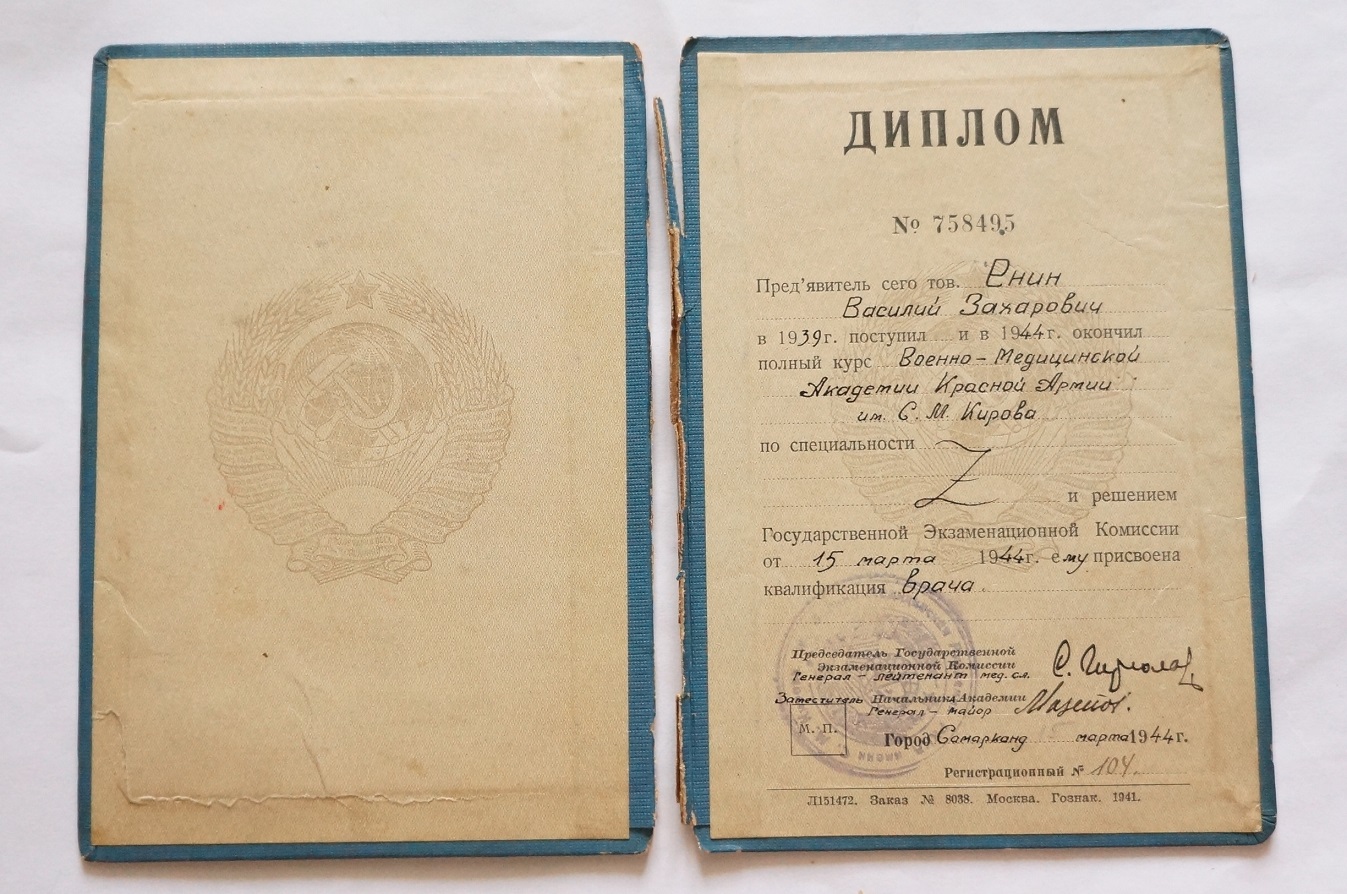 ДИПЛОМ
№ 758495
Пред'явитель сего тов. Енин
Василий Захарович
в 1939г. поступил и в 1944г. окончил
полный курс Военно-Медицинской
Академии Красной Армии
им. С. М. Кирова
по специальности
и решением
Государственной Экзаменационной Комиссии
от 15 марта 1944г. ему присвоена
квалификация врача
Председатель Государственной
Экзаменационной Комиссии
Генерал-лейтенант мед. сл.
Заместитель Начальника Академии
Генерал-майор
М. П.
Город Самарканд марта 1944г.
Регистрационный № 104.
Л151472. Заказ № 8038. Москва. Гознак. 1941.